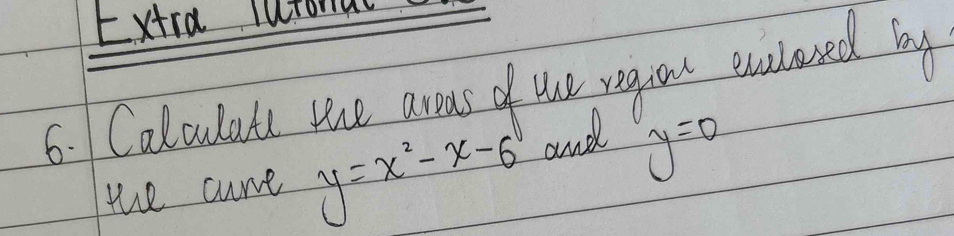 Extra Tutorial
6. Calculate the areas of the region enclosed by
the curve y = x² - x - 6 and y = 0